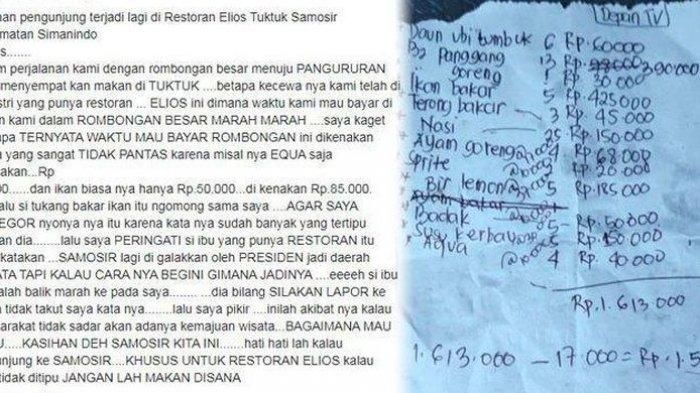 nan pengunjung terjadi lagi di Restoran Elios Tuktuk Samosir
matan Simanindo
s.......
m perjalanan kami dengan rombongan besar menuju PANGURURAN
menyempat kan makan di TUKTUK ....betapa kecewa nya kami telah di
stri yang punya restoran ... ELIOS ini dimana waktu kami mau bayar di
m kami dalam ROMBONGAN BESAR MARAH MARAH ....saya kaget
pa TERNYATA WAKTU MAU BAYAR ROMBONGAN ini dikenakan
a yang sangat TIDAK PANTAS karena misal nya EQUA saja
akan...Rp
00......dan ikan biasa nya hanya Rp.50.000... di kenakan Rp.85.000.
alu si tukang bakar ikan itu ngomong sama saya ....AGAR SAYA
EGOR nyonya nya itu karena kata nya sudah banyak yang tertipu
an dia........lalu saya PERINGATI si ibu yang punya RESTORAN itu
katakan ...SAMOSIR lagi di galakkan oleh PRESIDEN jadi daerah
ATA TAPI KALAU CARA NYA BEGINI GIMANA JADINYA ....eeeeh si ibu
alah balik marah ke pada saya....... dia bilang SILAKAN LAPOR ke
a tidak takut saya kata nya.......lalu saya pikir ....inilah akibat nya kalau
arakat tidak sadar akan adanya kemajuan wisata...BAGAIMANA MAU
U.....KASIHAN DEH SAMOSIR KITA INI.......hati hati lah kalau
unjung ke SAMOSIR....KHUSUS UNTUK RESTORAN ELIOS kalau
tidak ditipu JANGAN LAH MAKAN DISANA
Depan TV
Daun ubi tumbuk 6 Rp.60000
B2 Panggang 13 Rp. 390000
goreng 1 Rp 30000
Ikan bakar 5 Rp.425000
Terong bakar 3 Rp. 45 000
Nasi 25 Rp.150 000
Ayam goreng 4 Rp 68000
Sprite 2 Rp 20 000
Bir lemon 5 Rp.185 000
Ayam bakar
Badak 5 Rp.50000
Susu kerbau 5 Rp.150 000
Aqua 4 Rp 40 000
Rp.1.613 000
1.613.000 - 17.000 = Rp.1.5